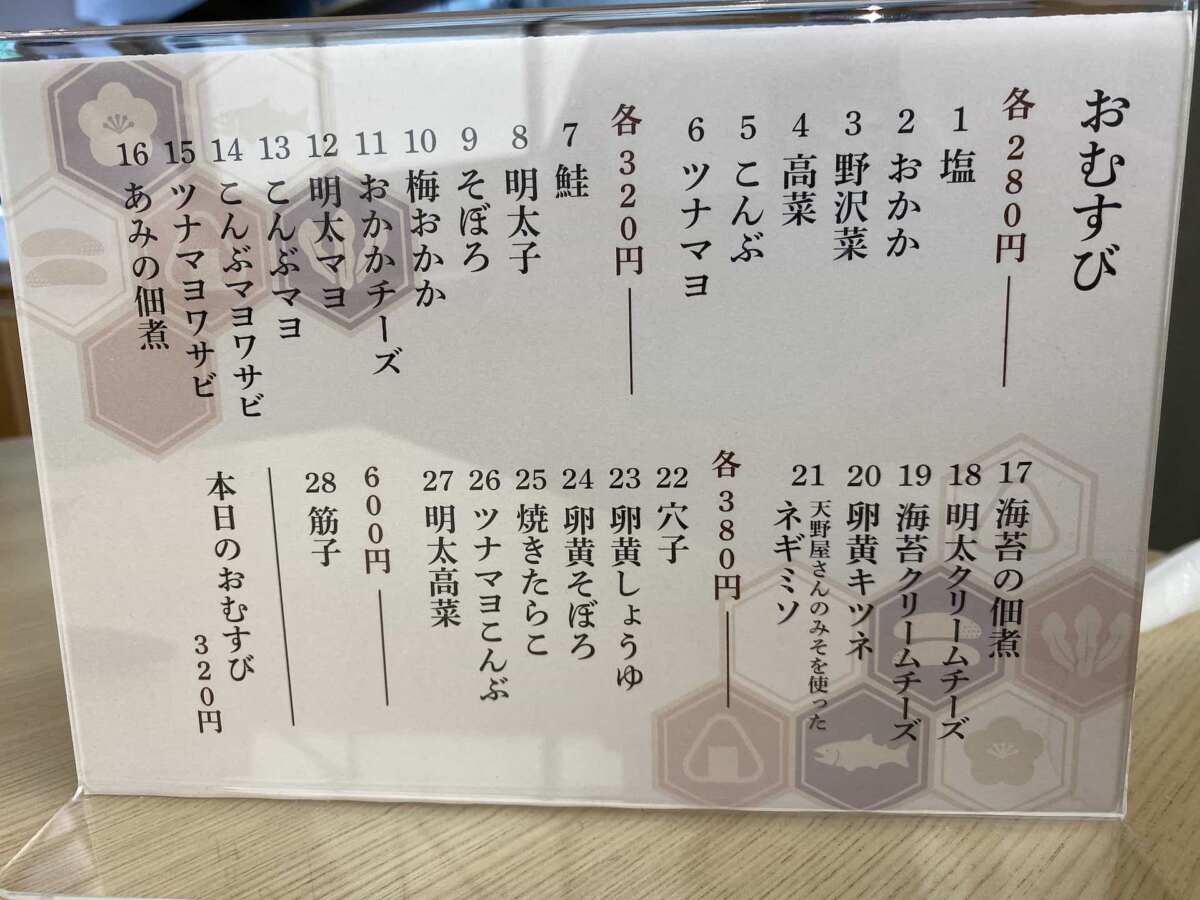 おむすび
各280円
1 塩
2 おかか
3 野沢菜
4 高菜
5 こんぶ
6 ツナマヨ
各320円
7 鮭
8 明太子
9 そぼろ
10 梅おかか
11 おかかチーズ
12 明太マヨ
13 こんぶマヨ
14 こんぶマヨワサビ
15 ツナマヨワサビ
16 あみの佃煮
17 海苔の佃煮
18 明太クリームチーズ
19 海苔クリームチーズ
20 卵黄キツネ
21 天野屋さんのみそを使った
ネギミソ
各380円
22 穴子
23 卵黄しょうゆ
24 卵黄そぼろ
25 焼きたらこ
26 ツナマヨこんぶ
27 明太高菜
600円
28 筋子
本日のおむすび
320円